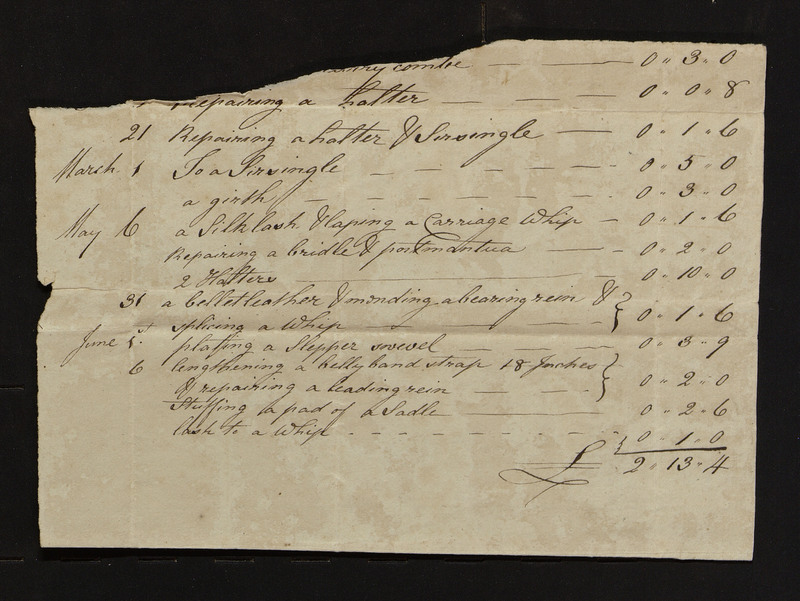 combe — — 0 " 3 " 0
Repairing a halter — — — 0 " 0 " 8
21 Repairing a halter & Sirsingle — 0 " 1 " 6
March 1 To a Sirsingle — — — — 0 " 5 " 0
a girth — — — — — 0 " 3 " 0
May 6 a Silk lash & laping a Carriage Whip — 0 " 1 " 6
Repairing a bridle & portmantua — 0 " 2 " 0
2 Halters — 0 " 10 " 0
31 a bellet leather & monding a bearing rein & }
splicing a Whip — — — } 0 " 1 " 6
June 1st plating a Slepper swevel — — 0 " 3 " 9
6 lengthening a belly band strap 18 Inches }
& repairing a leading rein — — } 0 " 2 " 0
Stuffing a pad of a Sadle — 0 " 2 " 6
lash to a Whip - - - - - - 0 " 1 " 0
£ 2 " 13 " 4